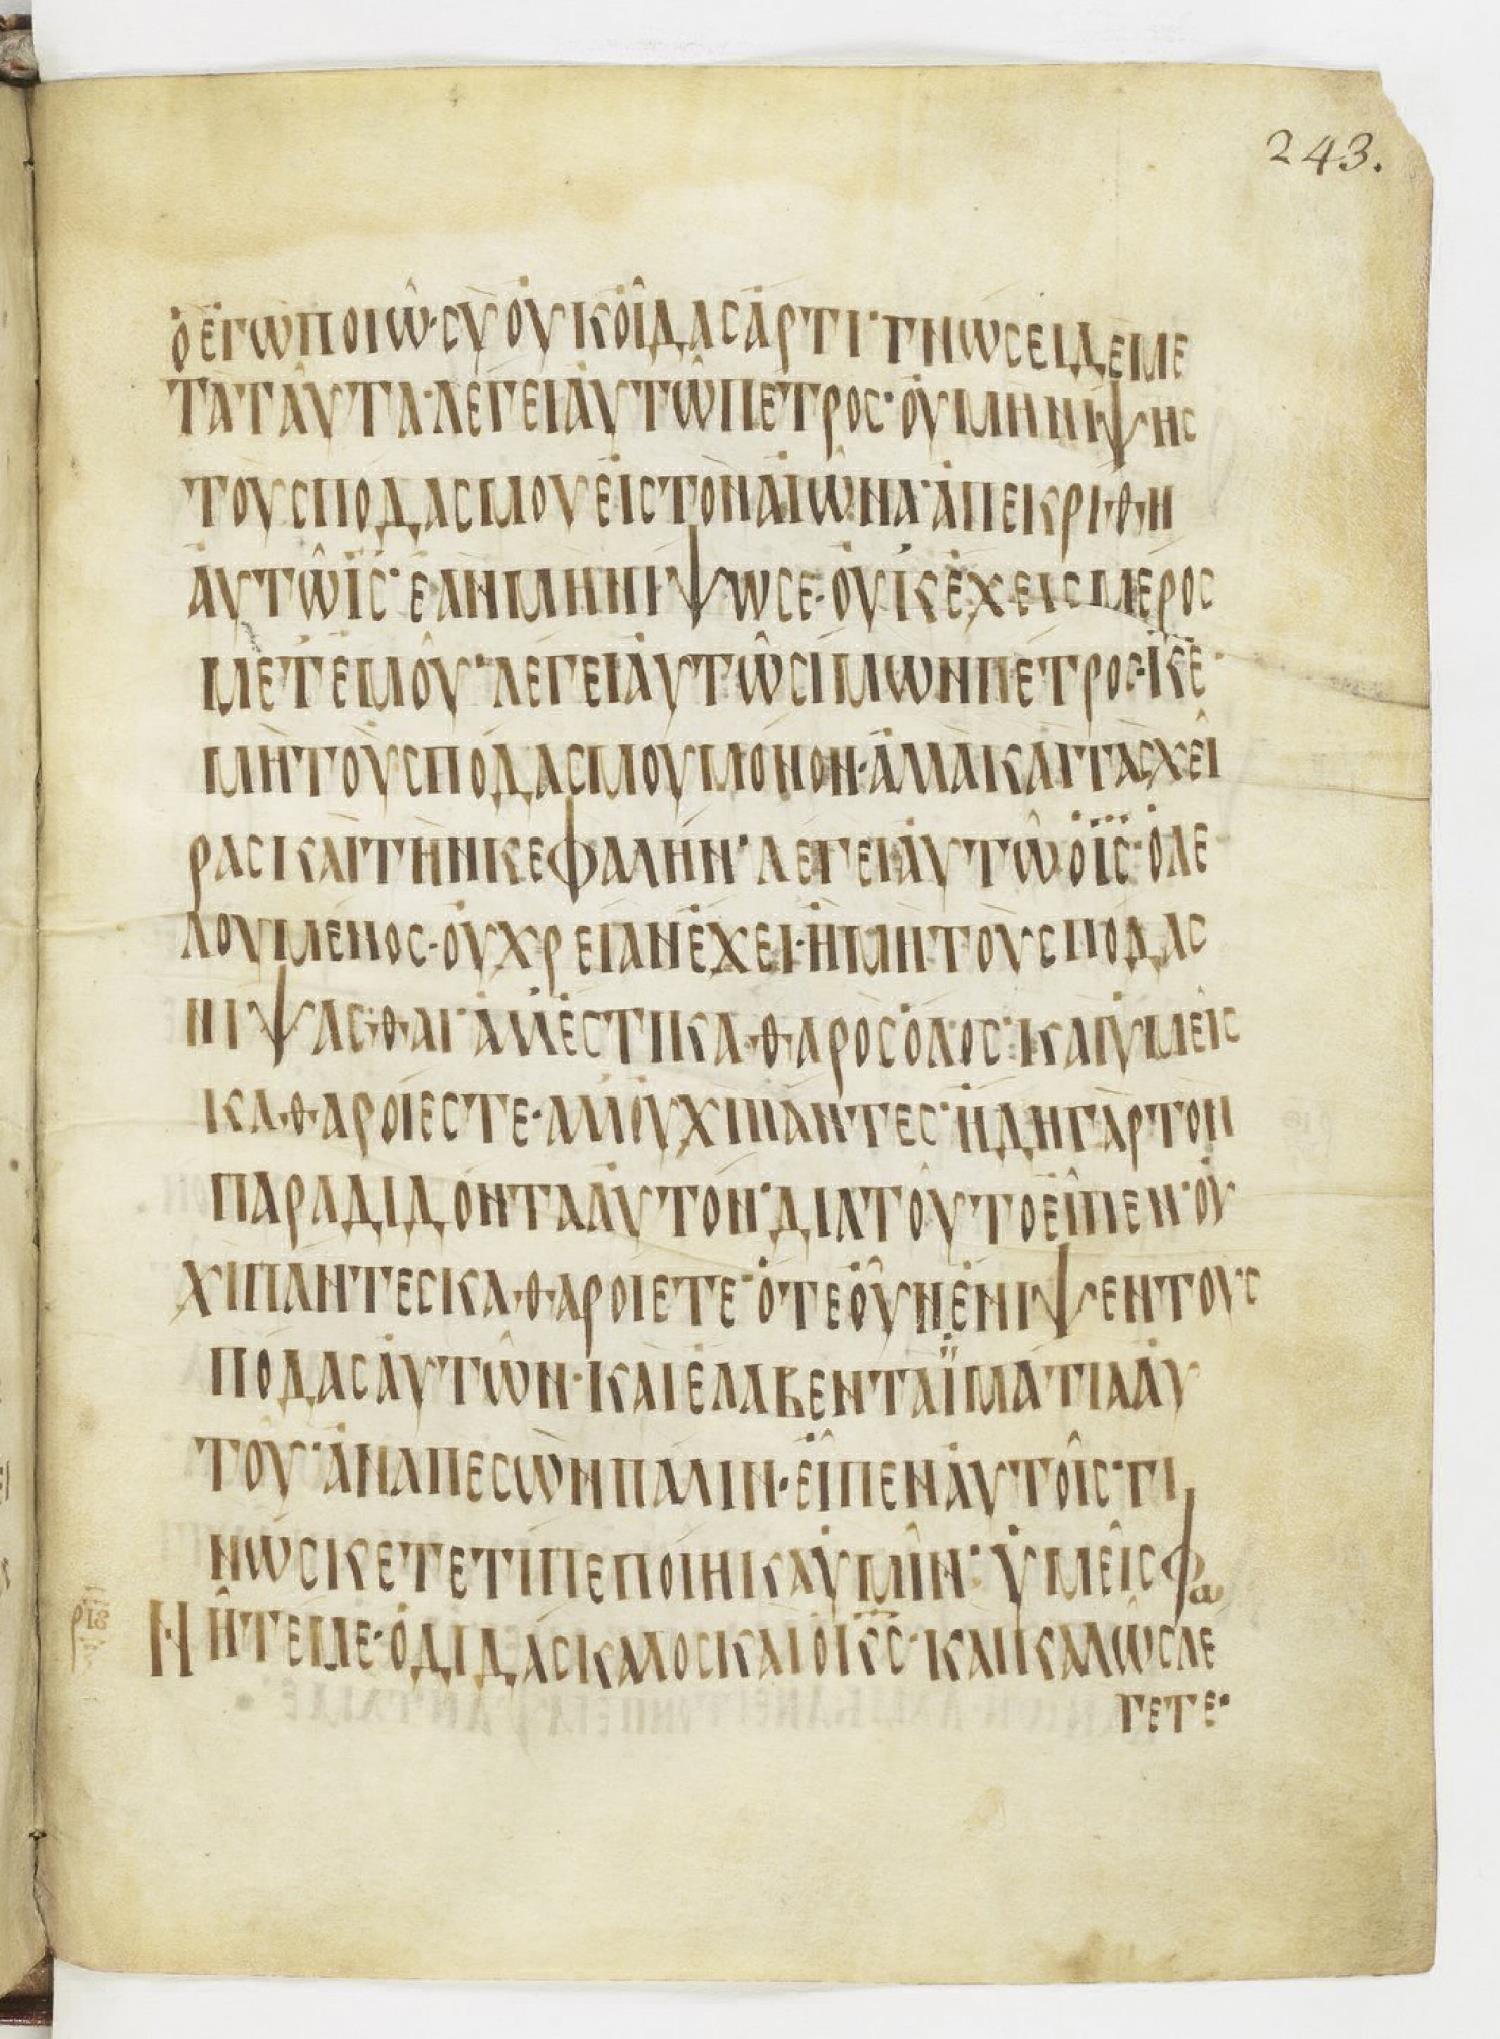 243.
ὃ ἐγὼ ποιῶ· σὺ οὐκ οἶδας ἄρτι· γνώσει δὲ με
τὰ ταῦτα· λέγει αὐτῶ πέτρος· οὐ μὴ νίψης
τοὺς πόδας μου εἰς τὸν αἰῶνα· ἀπεκρίθη
αὐτῶ ἰς· ἐὰν μὴ νίψω σε· οὐκ ἔχεις μέρος
μετ ἐμοῦ· λέγει αὐτῶ σίμων πέτρος· κε
μὴ τοὺς πόδας μου μόνον· ἀλλὰ καὶ τὰς χεῖ
ρας καὶ τὴν κεφαλήν· λέγει αὐτῶ ὁ ἰς· ὁ λε
λουμένος· οὐ χρείαν ἔχει· ἢ μὴ τοὺς πόδας
νίψασθαι· ἀλλ ἔστι καθαρὸς ὅλος· καὶ ὑμεῖς
καθαροί ἐστε· ἀλλ οὐχὶ πάντες· ἤδη γὰρ τὸν
παραδιδόντα αὐτόν· διὰ τοῦτο εἶπεν· οὐ
χὶ πάντες καθαροί ετε· ὅτε οὖν ἔνιψεν τοὺς
πόδας αὐτῶν· καὶ ἔλαβεν τὰ ἱμάτια αὐ
τοῦ· ἀναπεσὼν πάλιν· εἶπεν αὐτοῖς· γι
νώσκετε τί πεποίηκα ὑμῖν· ὑμεῖς φω
ριϛ Ν ῆτέ με· ὁ διδάσκαλος καὶ ὁ κς· καὶ καλῶς λέ
γετε·